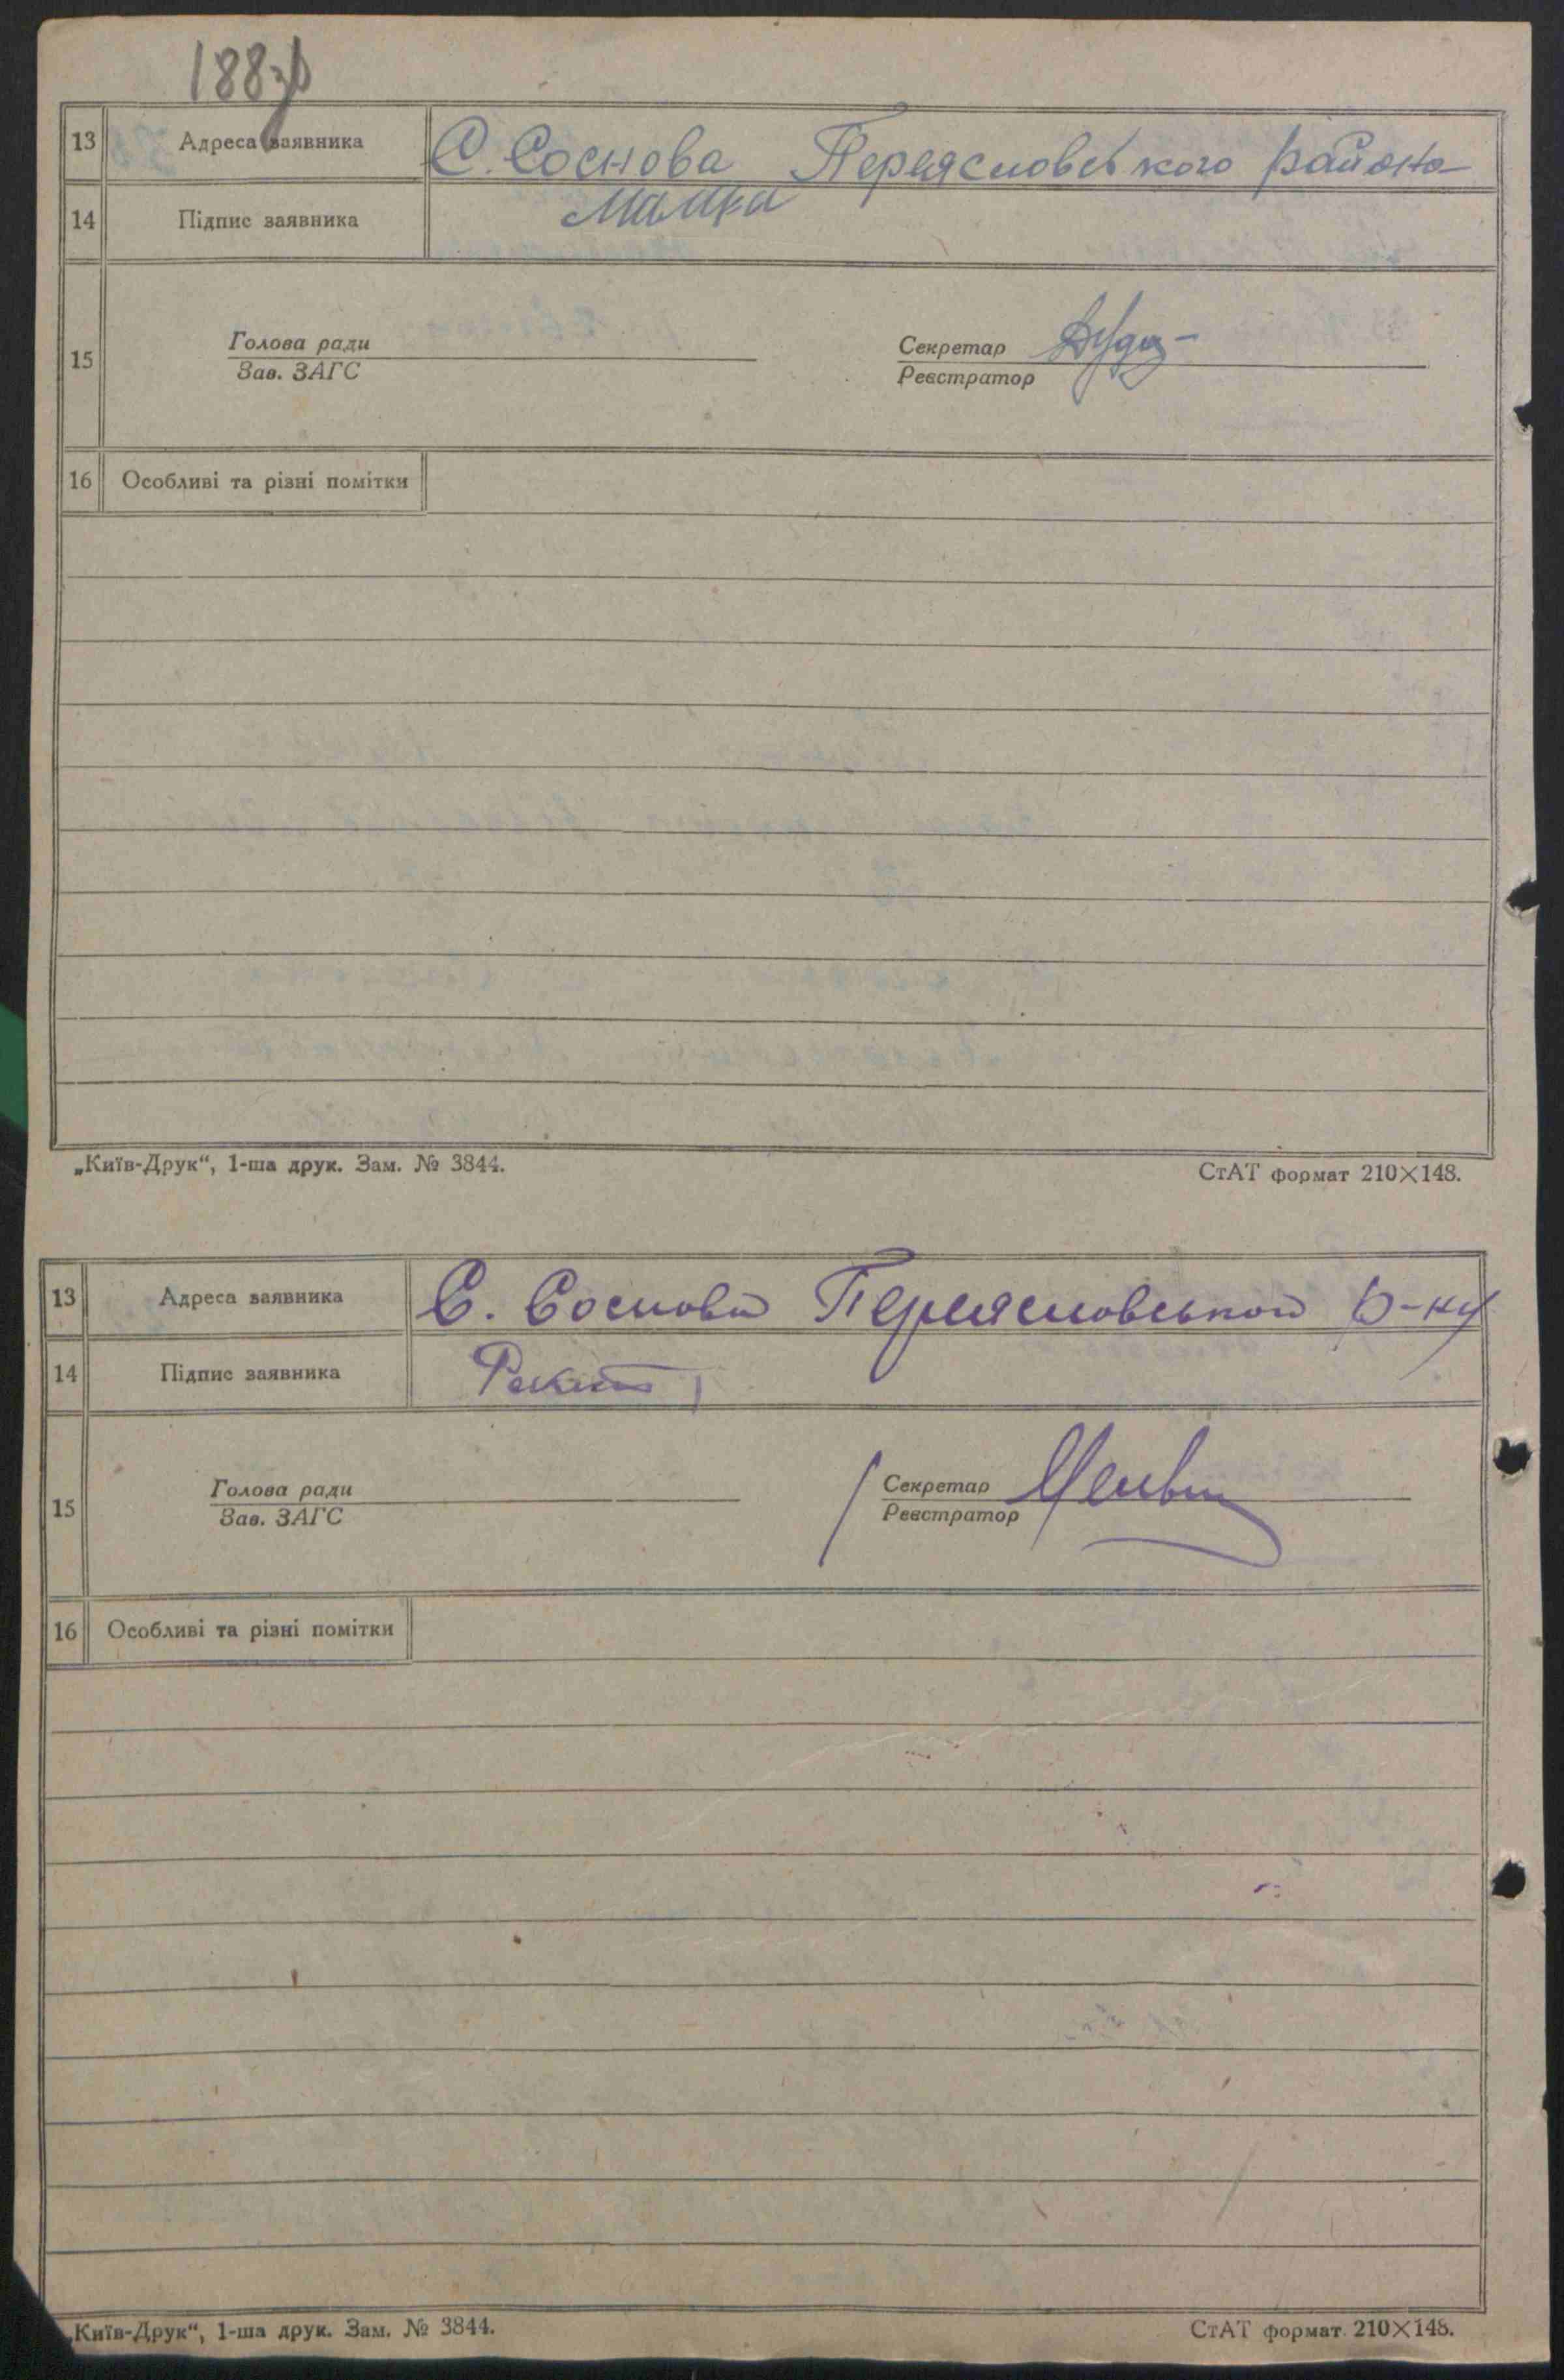 188зв
13 Адреса заявника С. Соснова Переясловського района
14 Підпис заявника
15 Голова ради Секретар
Зав. ЗАГС Реєстратор
16 Особливі та різні помітки
„Київ-Друк“, 1-ша друк. Зам. № 3844. СтАТ формат 210×148.
13 Адреса заявника С. Соснова Переясловського р-ну
14 Підпис заявника
15 Голова ради Секретар
Зав. ЗАГС Реєстратор
16 Особливі та різні помітки
„Київ-Друк“, 1-ша друк. Зам. № 3844. СтАТ формат 210×148.